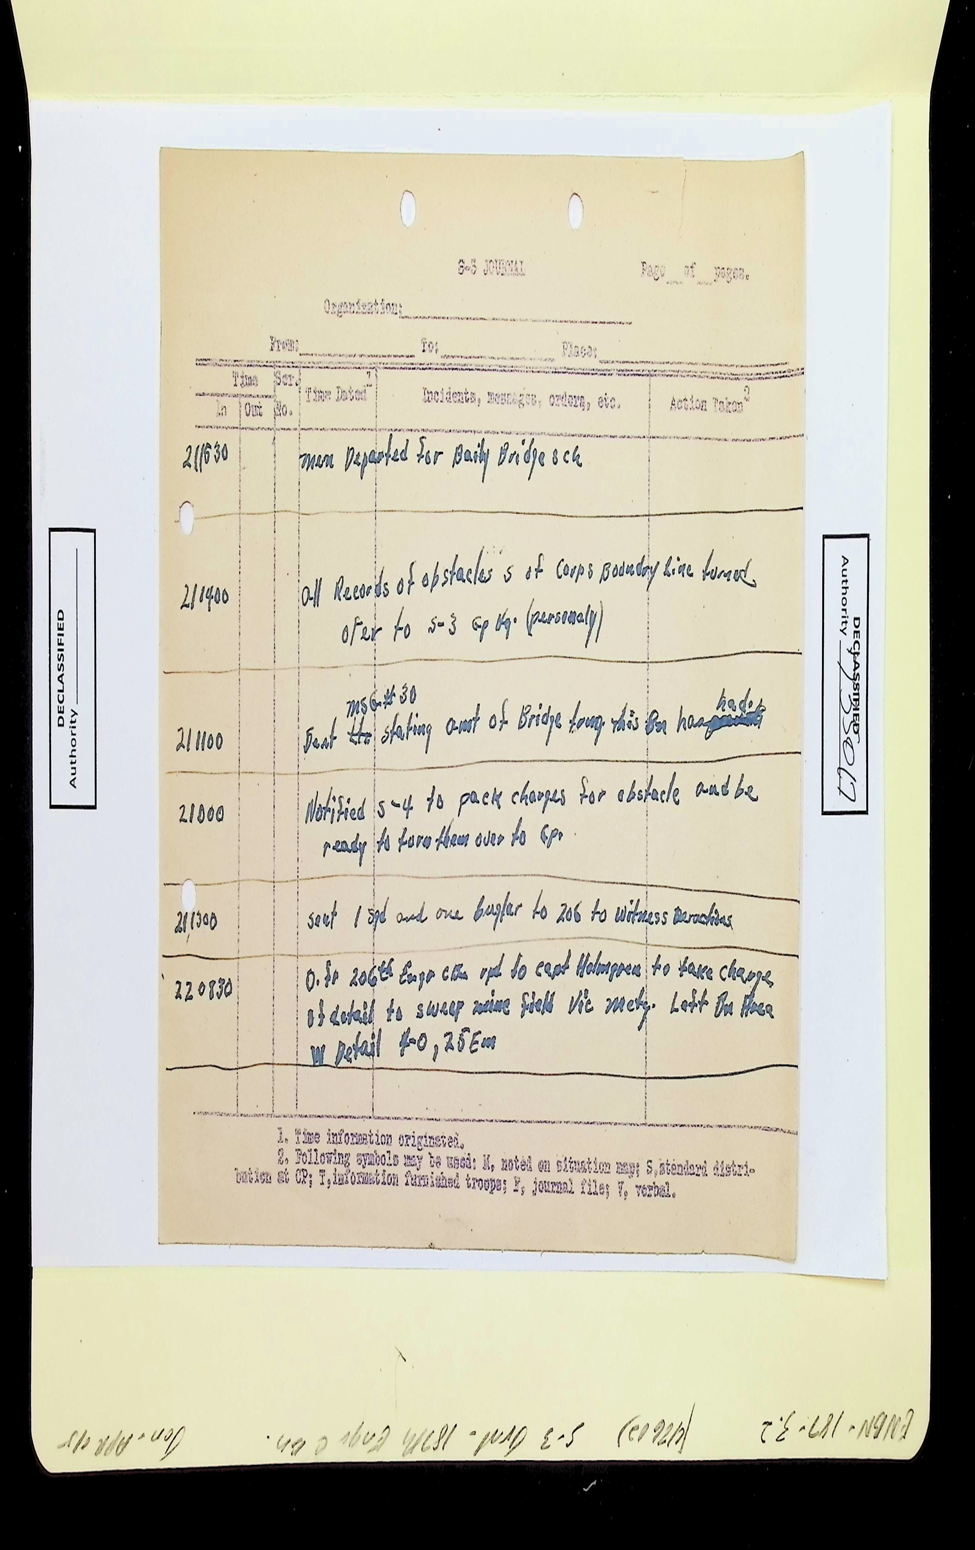 S-3 JOURNAL
Page __ of __ pages.
Organization:
From: To: Place:
Time Ser. Time Dated 1 Incidents, messages, orders, etc. Action Taken 2
In Out No.
211530 men Departed for Baily Bridge sch
211400 All Records of obstacles S of Corps Boundry Line turned
ofer to S-3 Gp Hq. (personaly)
MSG # 30
had.
211100 Sent stating amt of Bridge trung this Bn has
21000 Notified S-4 to pack charges for obstacle and be
ready to turn them over to Gp.
211300 sent 1 sqd and one bugler to 206 to witness
220830 O. fr 206th Engr rpd to capt Holmgren to take charge
of detail to sweep mine field Vic Metz. Left Bn Area
W Detail 1-O, 25 Em
1. Time information originated.
2. Following symbols may be used: M, noted on situation map; S, standard distri-
bution at CP; T, information furnished troops; F, journal file; V, verbal.
DECLASSIFIED
Authority
DECLASSIFIED
Authority
ENBN-187-3.2 (47602) S-3 Jrnl - 187th Engr C Bn. Jan-Apr 45